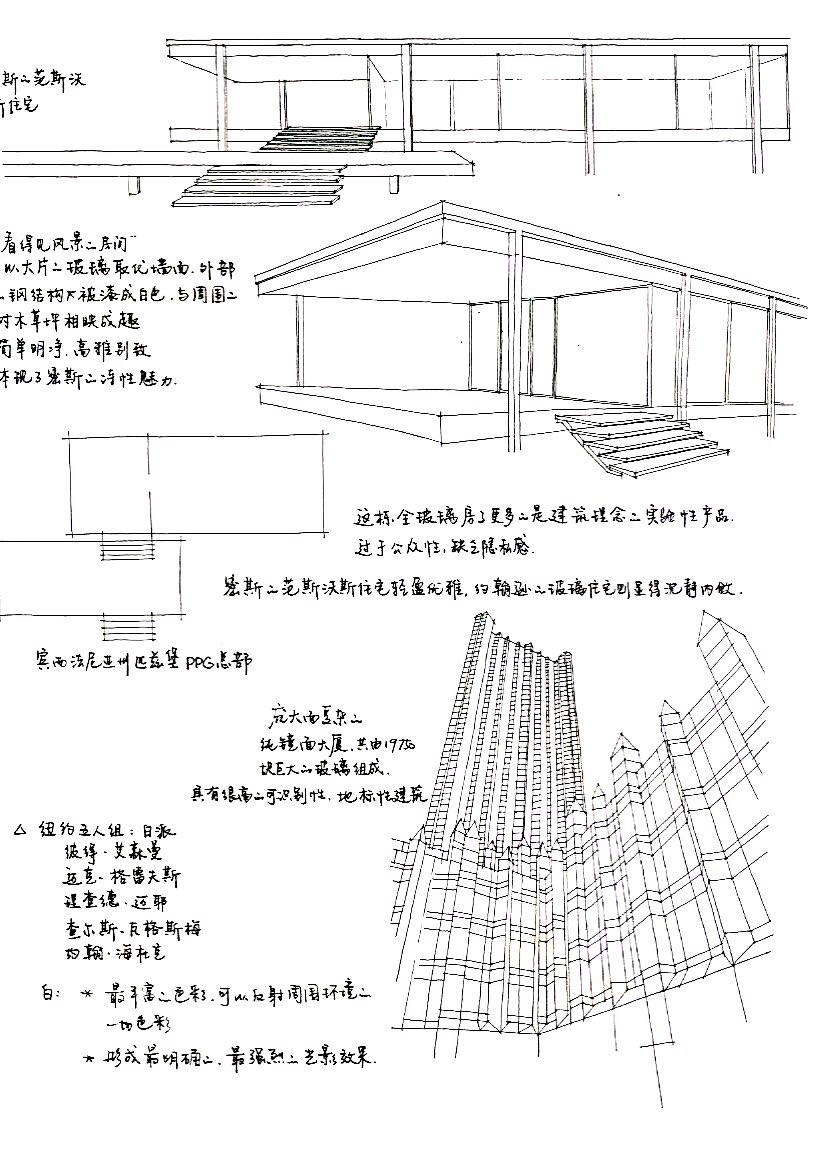 斯的范斯沃
斯住宅
看得见风景的房间"
以大片的玻璃取代墙面.外部
的钢结构大被漆成白色.与周围的
树木草坪相映成趣
简单明净.高雅别致
体现了密斯的冷性魅力.
这栋全玻璃房子更多的是建筑理念的实验性产品.
过于公众性,缺乏隐私感.
密斯的范斯沃斯住宅轻盈优雅,约翰逊的玻璃住宅则显得沉静内敛.
宾西法尼亚州匹兹堡PPG总部
庞大而复杂的
纯镜面大厦.共由19750
块巨大的玻璃组成.
具有很高的可识别性,地标性建筑
△ 纽约五人组:白派
彼得·艾森曼
迈克·格雷夫斯
理查德·迈耶
查尔斯·瓦格斯梅
约翰·海杜克
白: * 最丰富的色彩,可以反射周围环境的
一切色彩
* 形成最明确的、最强烈的光影效果.